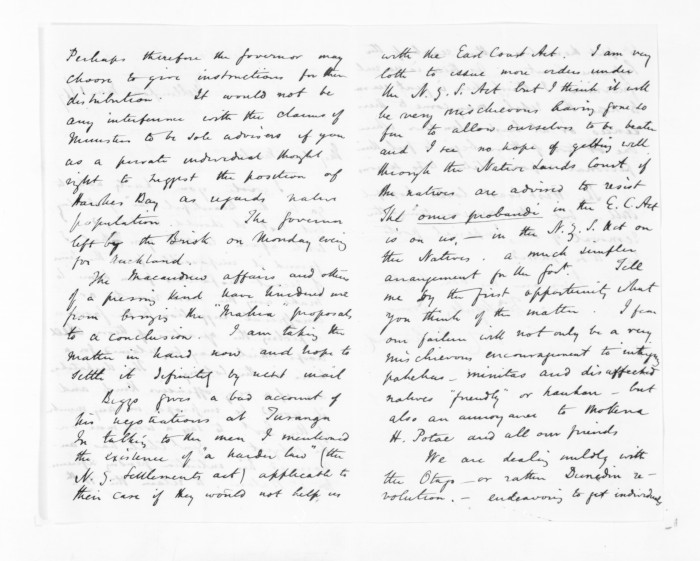 Perhaps therefore the Governor may
choose to give instructions for their
distribution. It would not be
any interference with the claims of
Ministers to be sole advisers if you
as a private individual thought
right to suggest the position of
Hawkes Bay as regards native
population. The Governor
left by the Brisk on Monday eving
for Auckland.
The Macandrew affairs and others
of a pressing kind have hindered me
from bringing the "Mahia" proposals
to a conclusion. I am taking the
matter in hand now and hope to
settle it definitely by next mail
Biggs gives a bad account of
his negotiations at Turanga
In talking to the men I mentioned
the existence of "a harder law" (the
N.Z. Settlements act) applicable to
their case if they would not help us
with the East Coast Act. I am very
loth to issue more orders under
the N.Z.S. Act but I think it will
be very mischievous having gone so
far to allow ourselves to be beaten
and I see no hope of getting well
through the Native Lands Court if
the natives are advised to resist
The "onus probandi" in the E.C. Act
is on us, — in the N.Z.S. Act on
the Natives. a much simpler
arrangement for the Govt. Tell
me by the first opportunity what
you think of the matter. I fear
our failure will not only be a very
mischievous encouragement to intriguing
pakehas — minitas and disaffected
natives "friendly" or hauhau — but
also an annoyance to Mokena
H. Potae and all our friends
We are dealing mildly with
the Otago — or rather Dunedin re-
volution. — endeavoring to get individuals